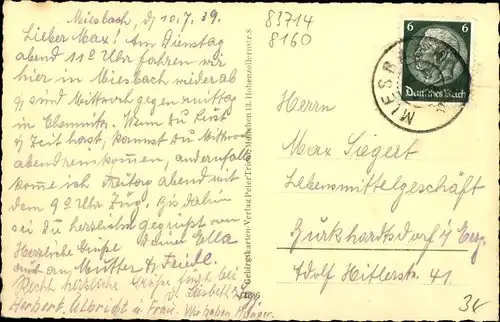 Miesbach, d. 10.7.39.
Lieber Max! Am Dienstag
abend 11º Uhr fahren wir
hier in Miesbach wieder ab
& sind Mittwoch gegen mittag
in Chemnitz. Wenn Du Lust
& Zeit hast, kannst Du Mittwoch
abend reinkommen, andernfalls
komme ich Freitag abend mit
dem 9º Uhr Zug. Bis dahin
sei Du herzlichst gegrüßt von
Herzliche Grüße Deiner Ella
auch an Mutter & Friedl.
Recht herzliche Grüße
Herbert, Albrecht u. Frau. Wir haben
Gebirgskarten-Verlag Peter München 13, Hohenzollernstr. 8
83714
8160
6 6
Deutsches Reich
MIESBACH
Herrn
Max Siegert
Lebensmittelgeschäft
Burkhardtsdorf i/ Erzg.
Adolf Hitlerstr. 41.